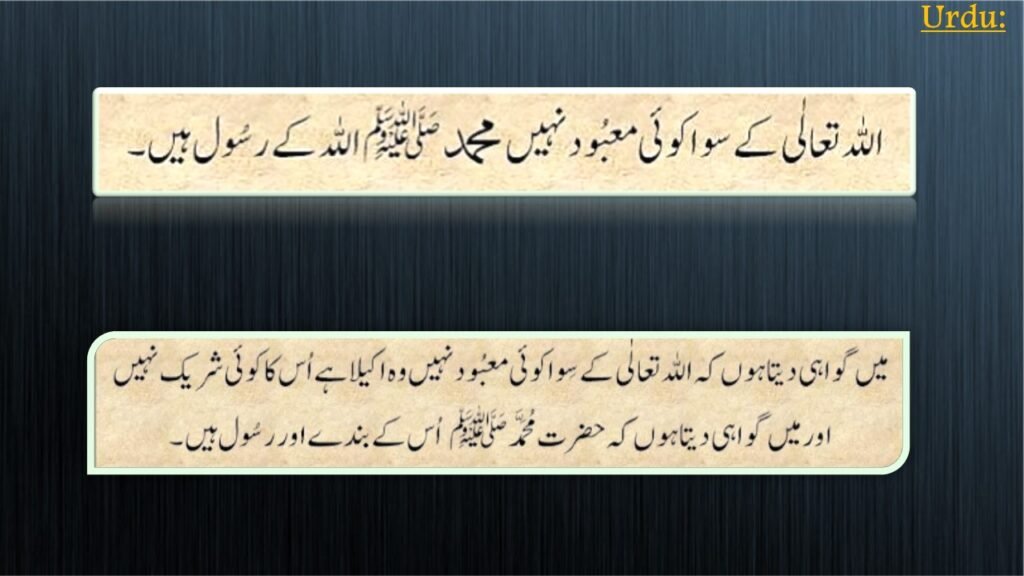 Urdu:
اللہ تعالٰی کے سوا کوئی معبُود نہیں محمد ﷺ اللہ کے رسُول ہیں۔
میں گواہی دیتا ہوں کہ اللہ تعالٰی کے سِوا کوئی معبُود نہیں وہ اکیلا ہے اُس کا کوئی شریک نہیں
اور میں گواہی دیتا ہوں کہ حضرت مُحمَّد ﷺ اُس کے بندے اور رسُول ہیں۔